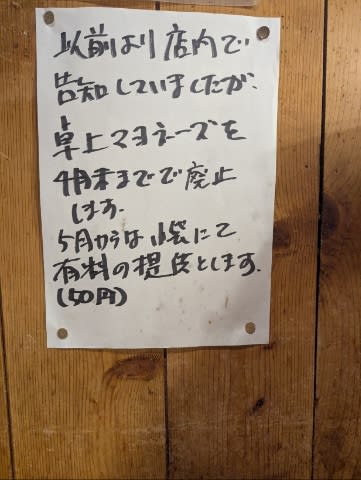 以前より店内で
告知していましたが、
卓上マヨネーズを
4月末までで廃止
します。
5月からは小袋にて
有料の提供とします。
(50円)